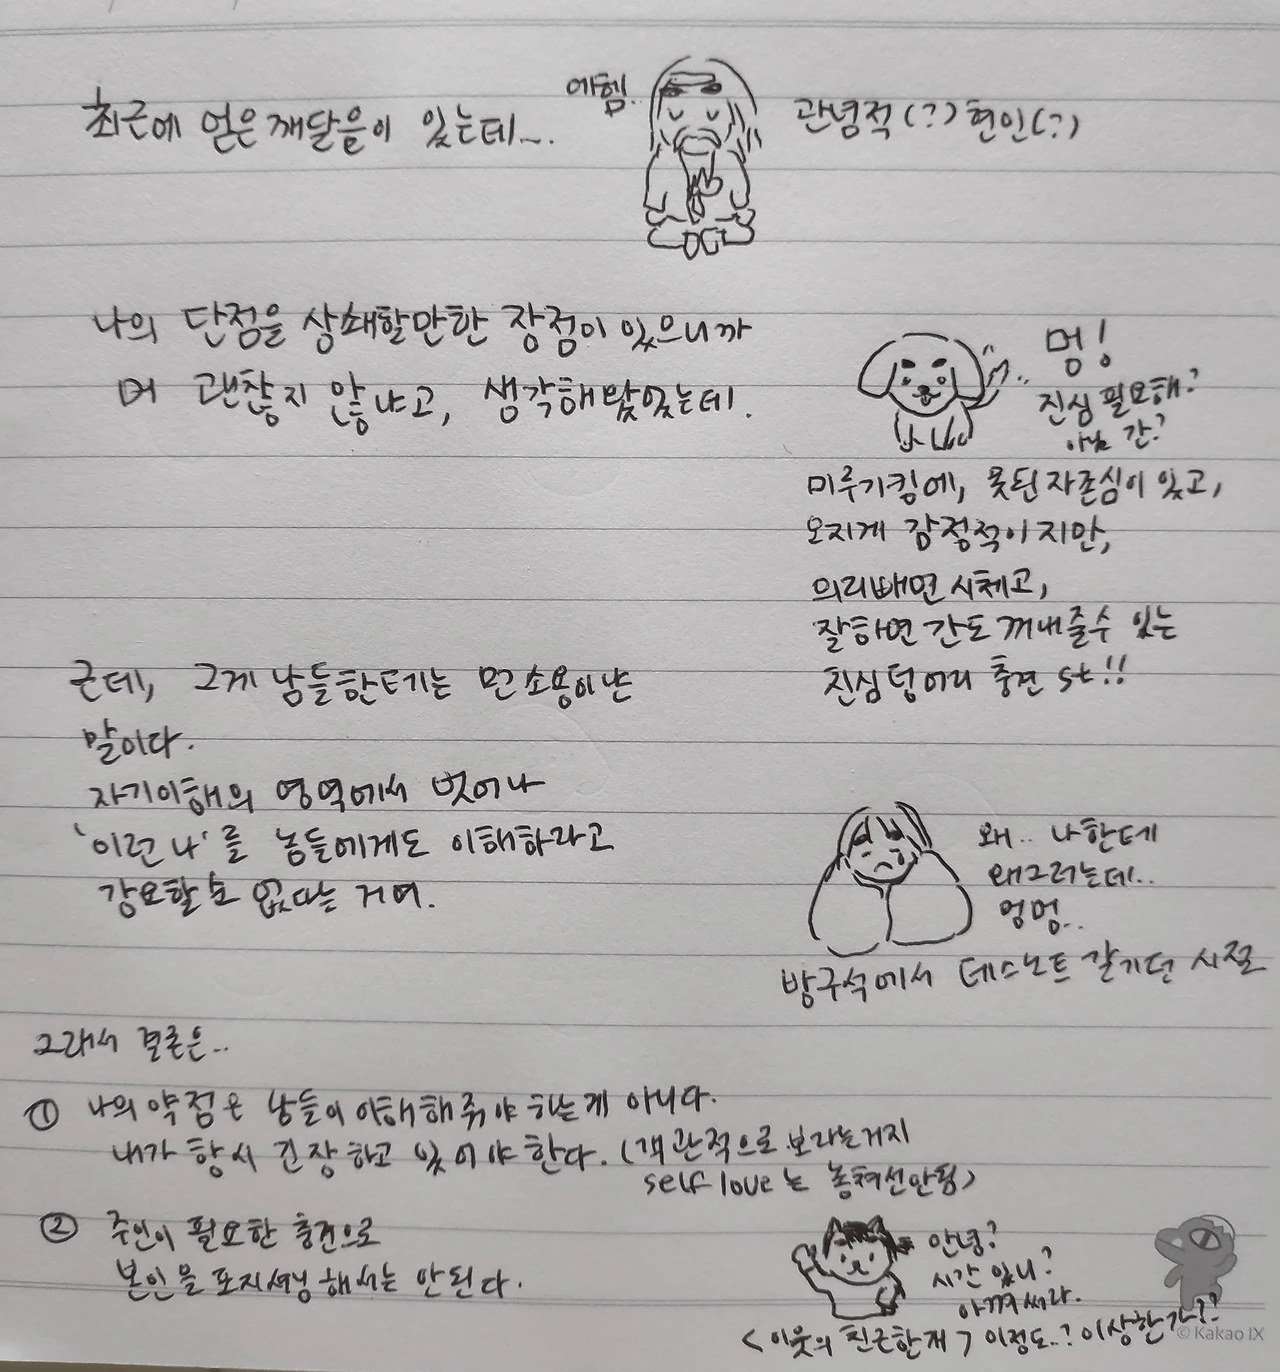 최근에 얻은 깨달음이 있는데...
에헴..
관념적(?) 현인(?)
나의 단점을 상쇄할만한 장점이 있으니까
머 괜찮지 않냐고, 생각해왔었는데.
멍!
진심 필요해?
아님 간?
미루기킹에, 못된 자존심이 있고,
오지게 감정적이지만,
의리빼면 시체고,
잘하면 간도 꺼내줄수 있는
진심 덩어리 충견 st!!
근데, 그게 남들한테는 먼 소용이냔
말이다.
자기이해의 영역에서 벗어나
'이런 나'를 놈들에게도 이해하라고
강요할 순 없다는 거여.
왜.. 나한테
왜그러는데..
멍멍..
방구석에서 데스노트 갈기던 시절
그래서 결론은..
① 나의 약점은 남들이 이해해줘야 하는게 아니다.
내가 항시 긴장하고 있어야 한다. (객관적으로 보라는거지
self love는 놓쳐선안됨)
② 주인이 필요한 충견으로
본인을 포지셔닝해서는 안된다.
안녕?
시간 있니?
아껴써라.
<이웃의 친근한개> 이정도..? 이상한가??
© Kakao IX